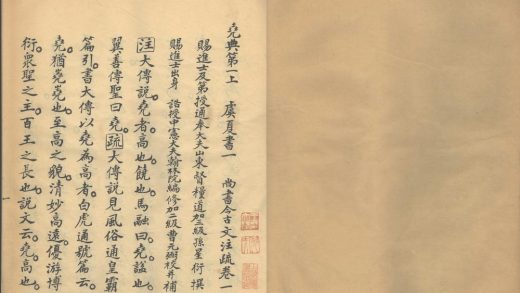 堯典第一上 虞夏書一 尚書今古文注疏卷一
賜進士及第授通奉大夫山東督糧道加三級孫星衍撰
賜進士出身 誥授中憲大夫翰林院編修加二級曹元弼校并補
注大傳說堯者高也。饒也。馬融曰堯諡也。
翼善傳聖曰堯。疏大傳說見風俗通皇霸
篇引書大傳以堯為高者。白虎通號篇云。
堯猶堯堯也。至高之貌。清妙高遠。優游博
衍。衆聖之主。百王之長也。說文云。堯高也。